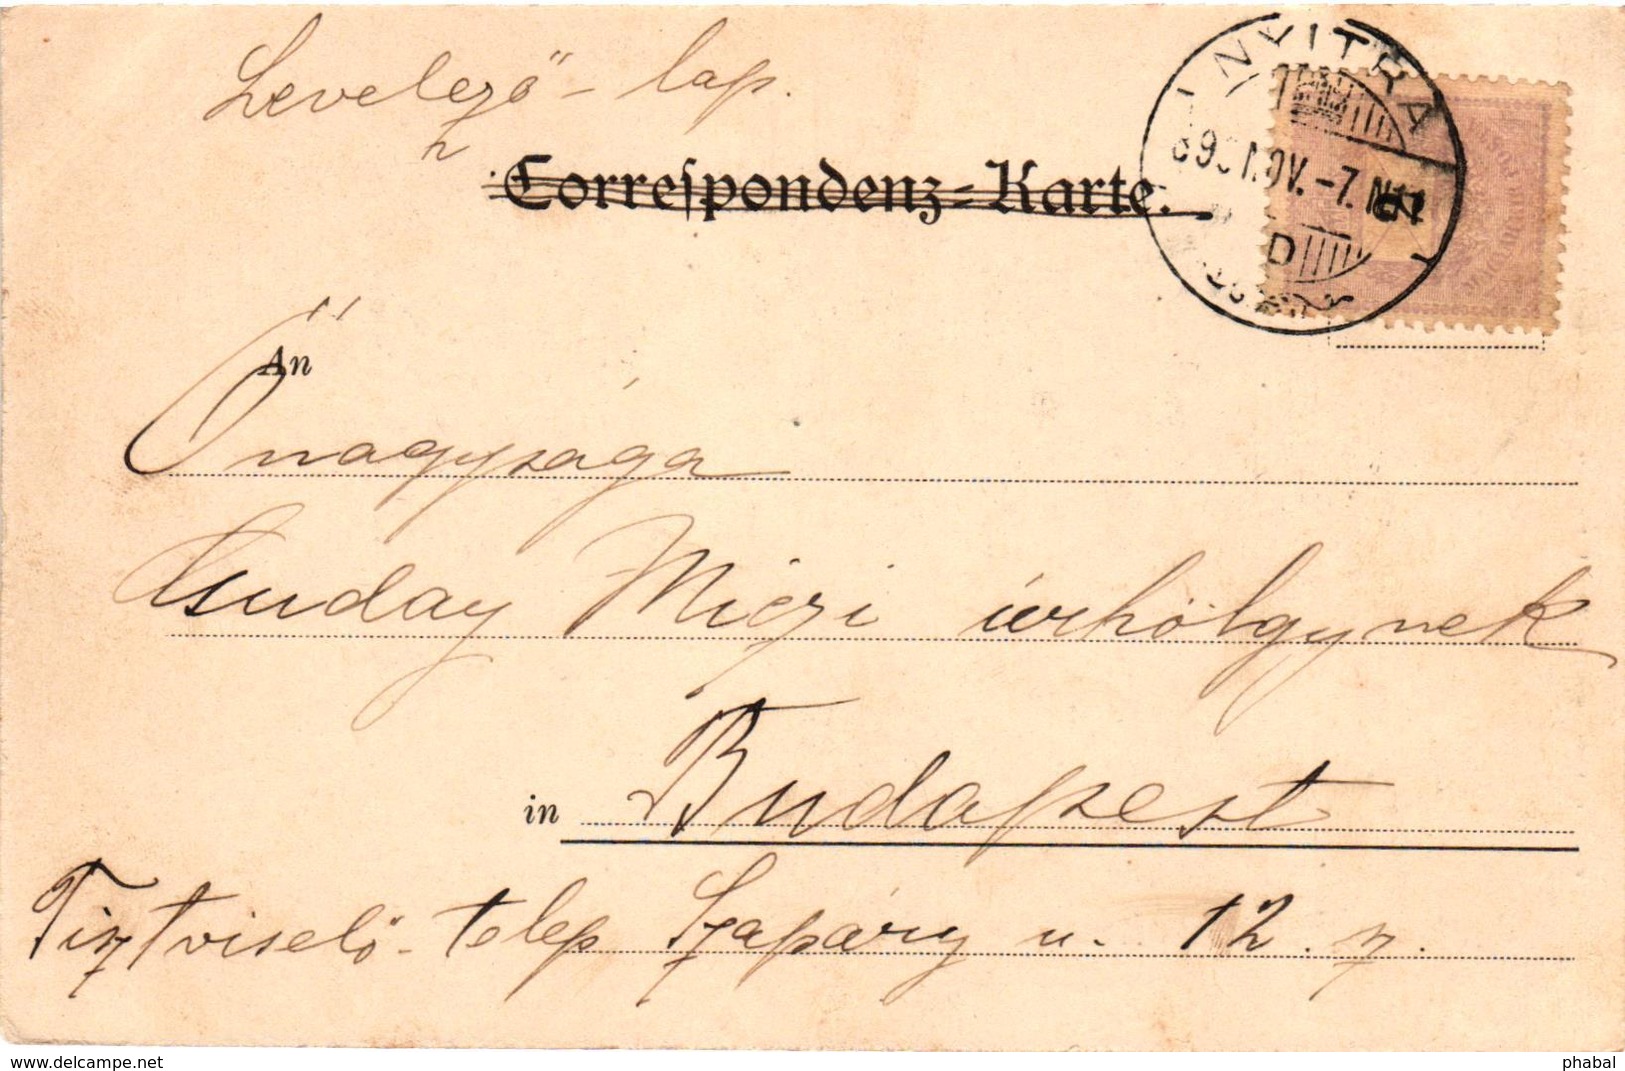 Levelező-lap.
Correspondenz-Karte.
NYITRA
NOV. -7. N
D
An
Őnagysága
Miczi úrhölgynek
in Budapest
Tisztviselő-telep Szapáry u. 12. z.
https://www.delcampe.net
phabal